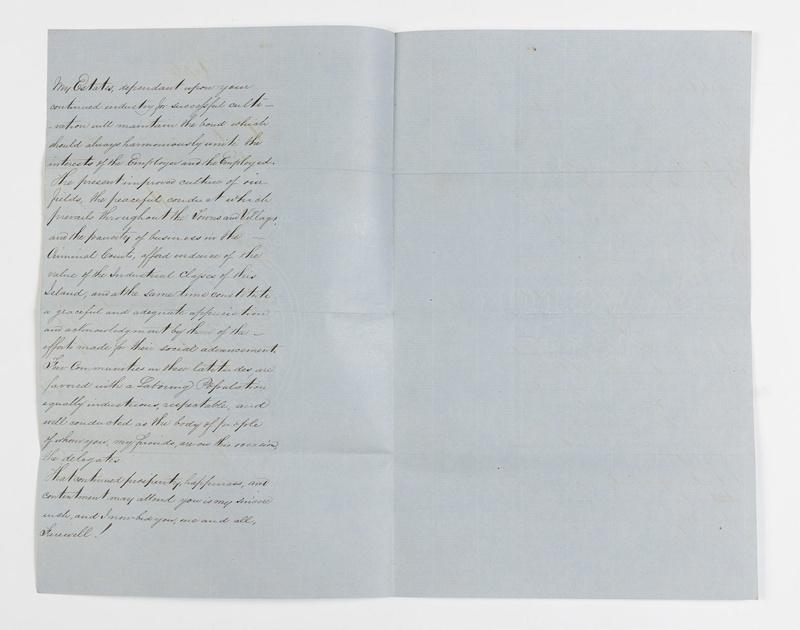 My Estates, dependant upon your
continued industry for successful culti-
-vation will maintain the bond which
should always harmoniously unite the
interests of the Employer and the Employed.
The present improved culture of our
fields, the peaceful conduct which
prevails throughout the Towns and Villages,
and the paucity of business in the -
Criminal Courts, afford evidence of the
value of the Industrial Classes of this
Island; and at the same time constitute
a graceful and adequate appreciation
and acknowledgment by them of the -
efforts made for their social advancement.
Few Communities in these latitudes are
favored with a Laboring Population
equally industrious, respectable, and
well conducted as the body of people
of whom you, my friends, are on this occasion,
the delegates
That continued prosperity, happiness, and
contentment may attend you is my sincere
wish, and I now bid you, one and all,
Farewell!